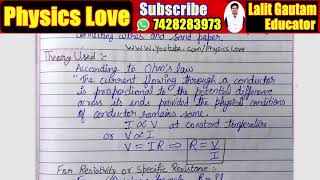 Physics Love
Subscribe
7428283973
Lalit Gautam
Educator
connecting wires and sand paper.
www.youtube.com/PhysicsLove
Theory Used :-
According to Ohm's law
"The current flowing through a conductor
is proportional to the potential difference
across its ends provided the physical conditions
of conductor remains same.
I ∝ V at constant temperature
or V ∝ I
V = IR ⇒ R = V/I
For Resistivity or Specific Resistance :-